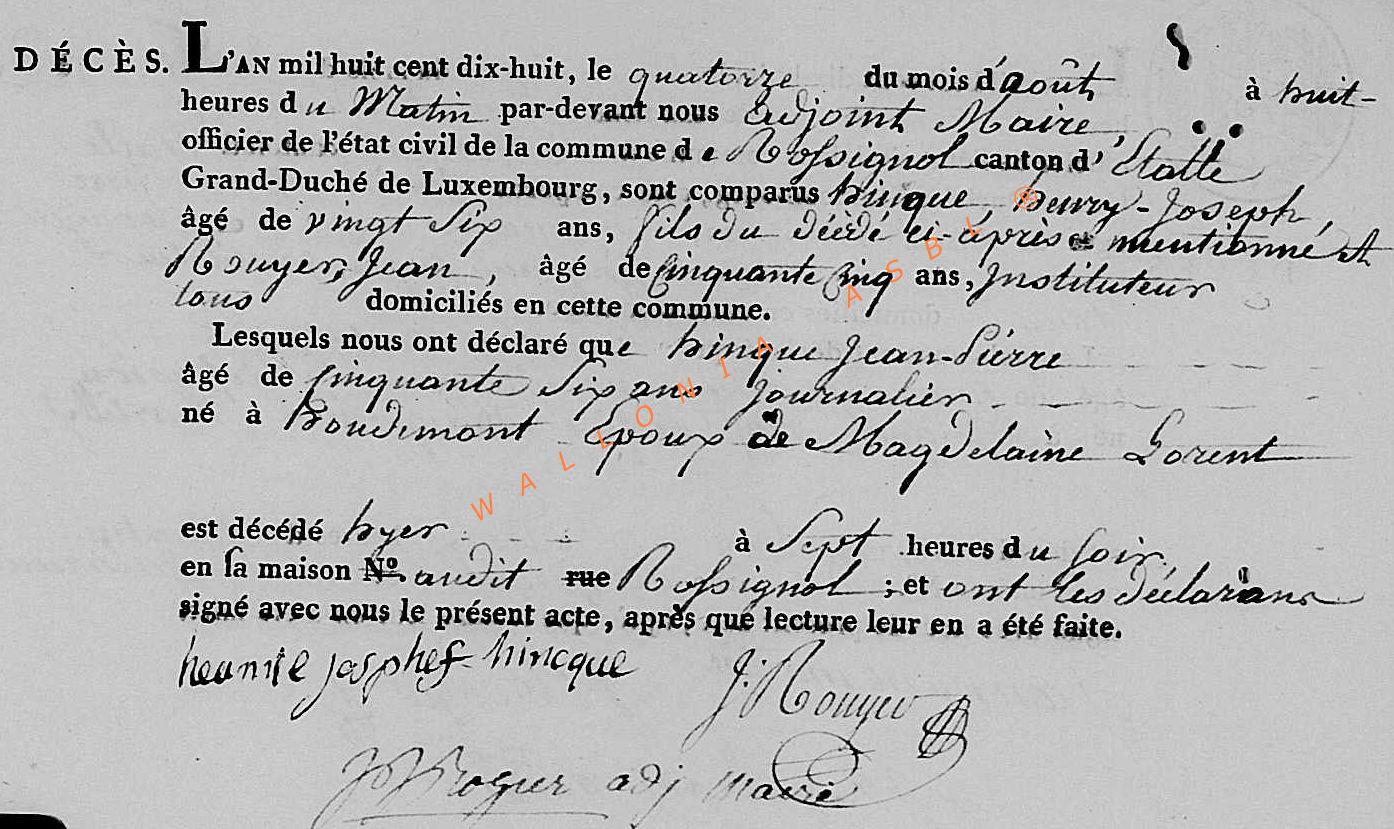 DÉCÈS. L'AN mil huit cent dix-huit, le quatorze du mois d'août à huit
heures du Matin par-devant nous adjoint Maire,
officier de l'état civil de la commune de Rossignol canton d'Etalle
Grand-Duché de Luxembourg, sont comparus hinque, henry-Joseph,
âgé de vingt Six ans, fils du décédé ci-après mentionné et
Rouyer, Jean, âgé de Cinquante Cinq ans, Instituteur
tous domiciliés en cette commune.
Lesquels nous ont déclaré que hinque Jean-Pierre
âgé de Cinquante Six ans Journalier
né à houdemont Epoux de Magdelaine Lorent
est décédé hyer à Sept heures du Soir
en sa maison No. audit rue Rossignol ; et ont les déclarans
signé avec nous le présent acte, après que lecture leur en a été faite.
hincque
J: Rouyer
adj maire
WALLONIA ASBL ®